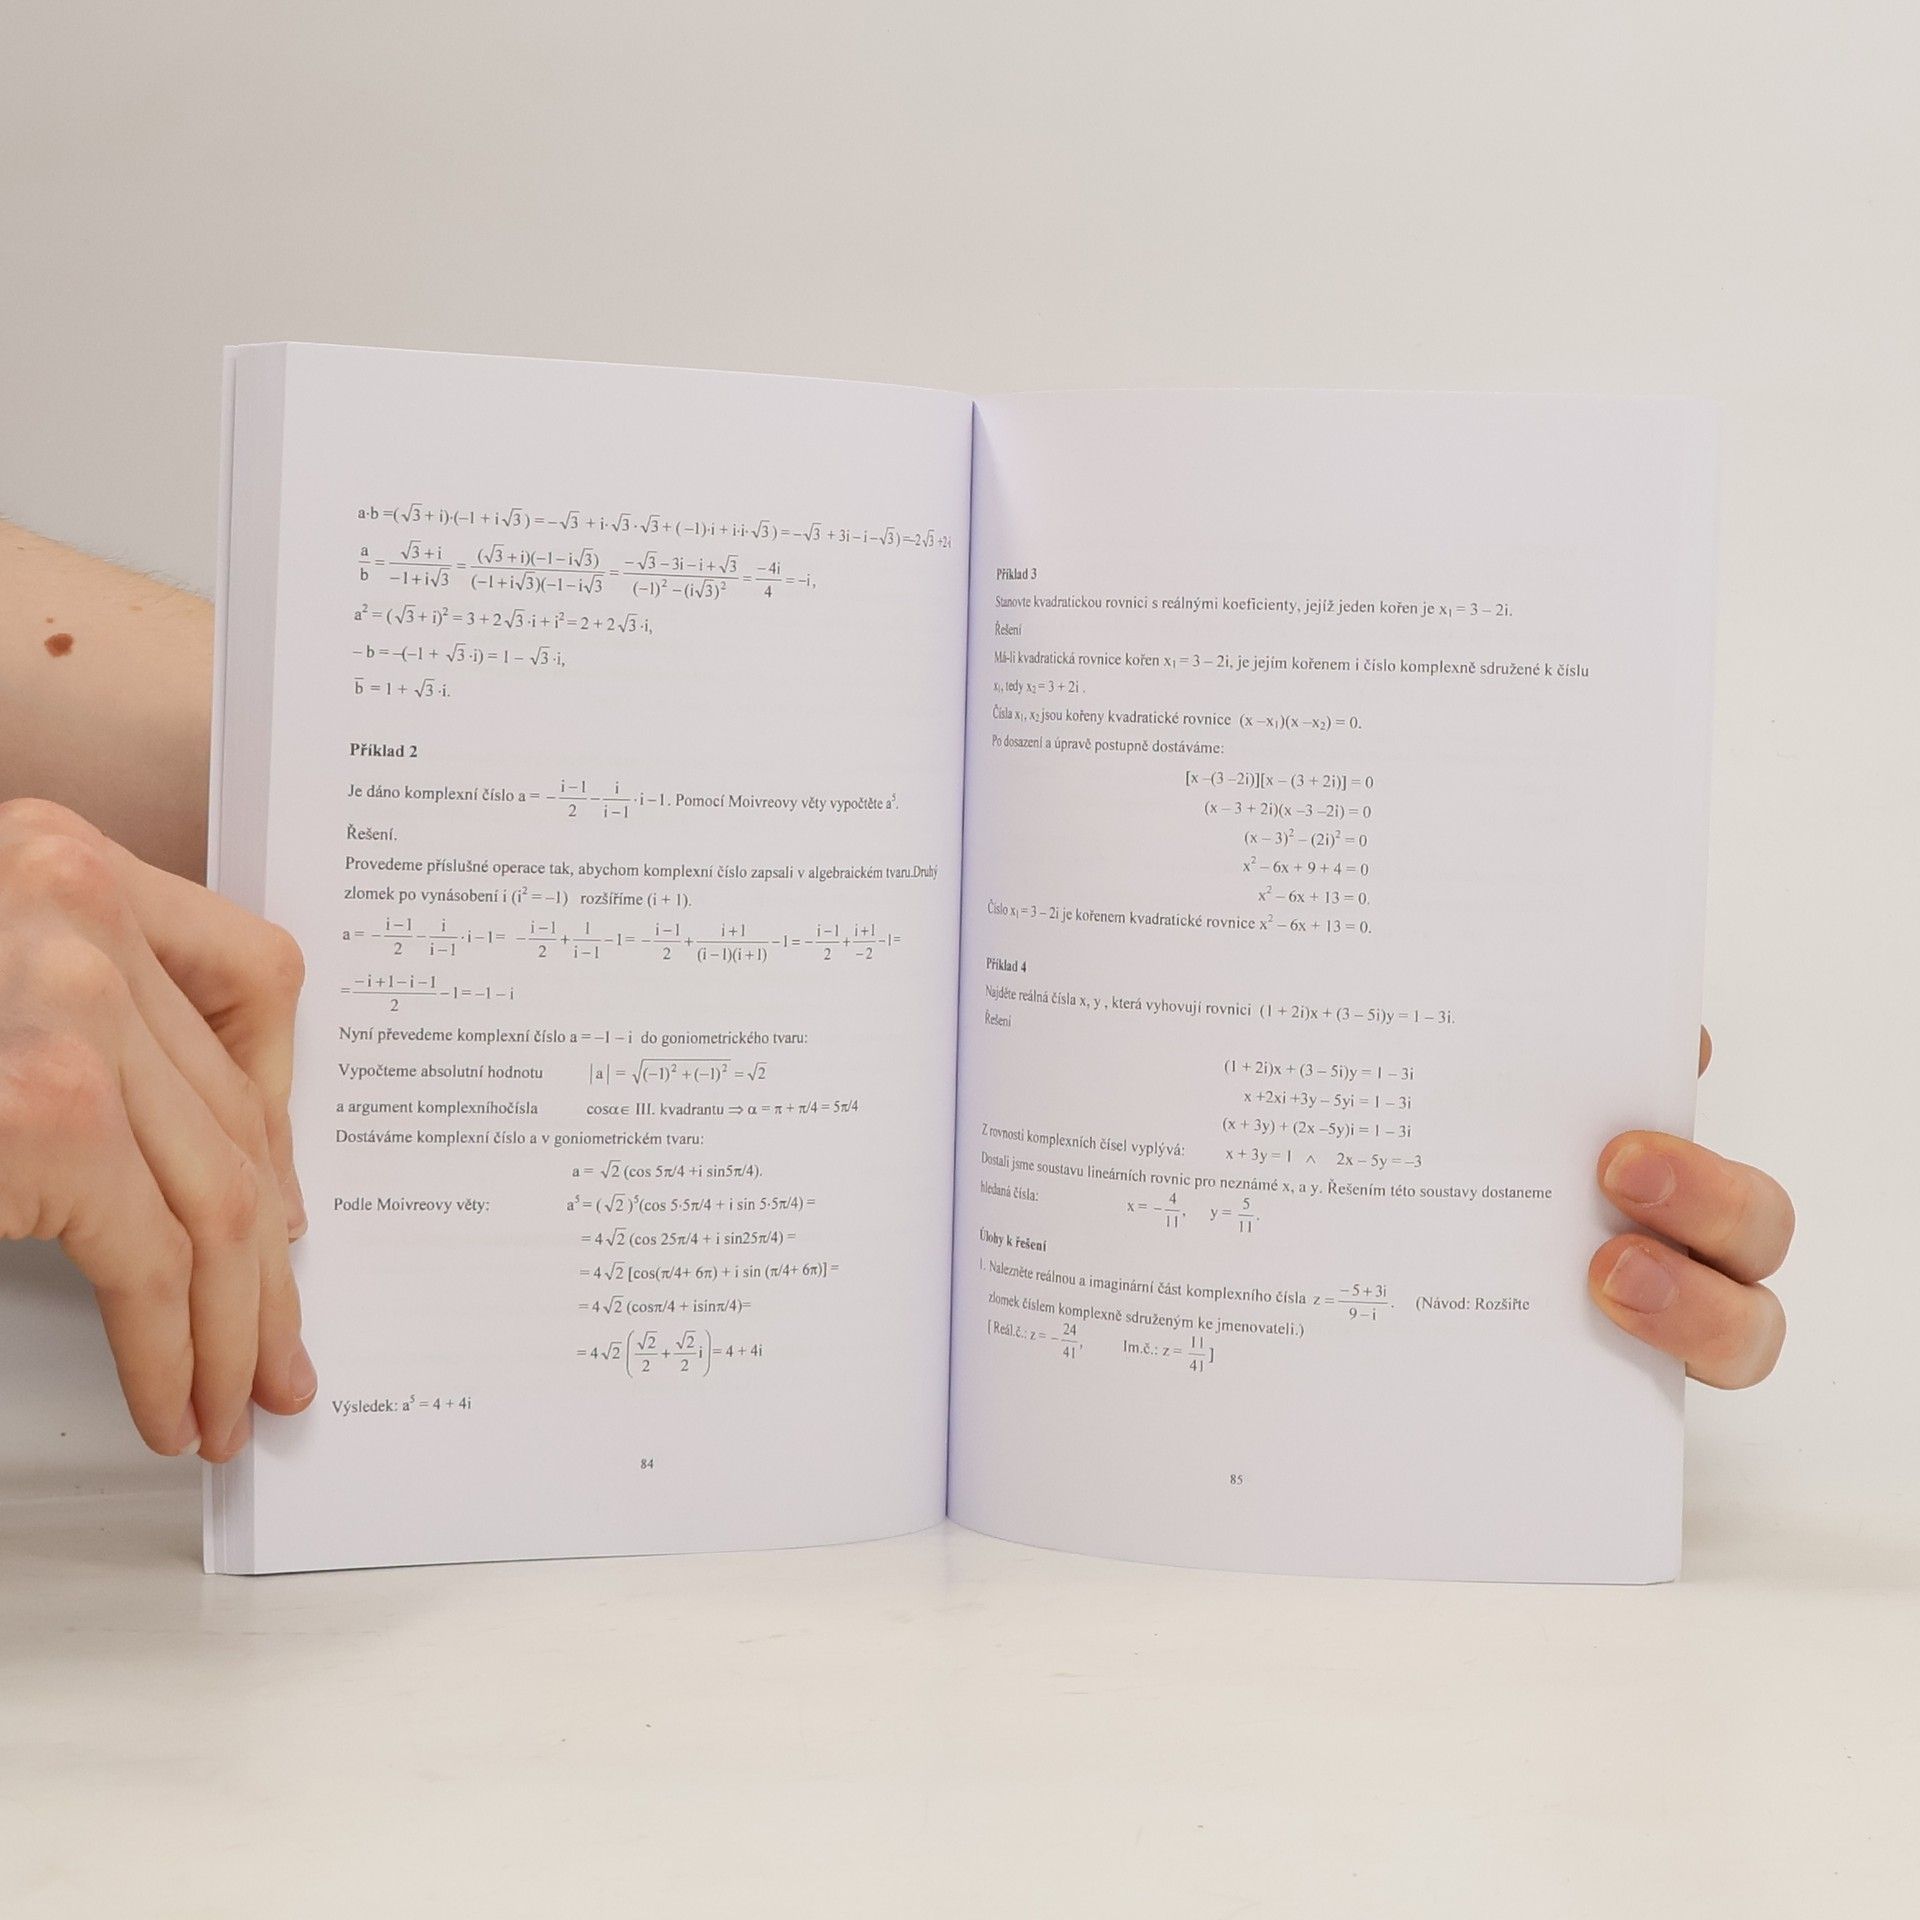 a·b =(√3 + i)·(–1 + i√3 ) = –√3 + i·√3·√3 + ( –1)·i + i·i·√3 ) = –√3 + 3i – i –√3) =–2√3 +2i
a/b = (√3 + i)/(–1+i√3) = ((√3 + i)(–1–i√3))/((–1+i√3)(–1–i√3) = (–√3 – 3i – i + √3)/((–1)² – (i√3)²) = –4i/4 = –i,
a² = (√3 + i)² = 3 + 2√3·i + i² = 2 + 2√3·i,
– b = –(–1 + √3·i) = 1 – √3·i,
b̅ = 1 + √3·i.
Příklad 2
Je dáno komplexní číslo a = – (i–1)/2 – i/(i–1) · i – 1. Pomocí Moivreovy věty vypočtěte a⁵.
Řešení.
Provedeme příslušné operace tak, abychom komplexní číslo zapsali v algebraickém tvaru.Druhý
zlomek po vynásobení i (i² = –1) rozšíříme (i + 1).
a = – (i–1)/2 – i/(i–1) · i – 1 = – (i–1)/2 + 1/(i–1) – 1 = – (i–1)/2 + (i+1)/((i–1)(i+1)) – 1 = – (i–1)/2 + (i+1)/–2 – 1=
= (–i+1–i–1)/2 – 1 = –1 – i
Nyní převedeme komplexní číslo a = –1 – i do goniometrického tvaru:
Vypočteme absolutní hodnotu |a| = √((–1)² + (–1)²) = √2
a argument komplexníhočísla cosα∈ III. kvadrantu ⇒ α = π + π/4 = 5π/4
Dostáváme komplexní číslo a v goniometrickém tvaru:
a = √2 (cos 5π/4 +i sin5π/4).
Podle Moivreovy věty: a⁵ = (√2 )⁵(cos 5·5π/4 + i sin 5·5π/4) =
= 4√2 (cos 25π/4 + i sin25π/4) =
= 4√2 [cos(π/4+ 6π) + i sin (π/4+ 6π)] =
= 4√2 (cosπ/4 + isinπ/4)=
= 4√2 (√2/2 + √2/2 i) = 4 + 4i
Výsledek: a⁵ = 4 + 4i
84
Příklad 3
Stanovte kvadratickou rovnici s reálnými koeficienty, jejíž jeden kořen je x₁ = 3 – 2i.
Řešení
Má-li kvadratická rovnice kořen x₁ = 3 – 2i, je jejím kořenem i číslo komplexně sdružené k číslu
x₁, tedy x₂ = 3 + 2i .
Čísla x₁, x₂ jsou kořeny kvadratické rovnice (x –x₁)(x –x₂) = 0.
Po dosazení a úpravě postupně dostáváme:
[x –(3 –2i)][x – (3 + 2i)] = 0
(x – 3 + 2i)(x –3 –2i) = 0
(x – 3)² – (2i)² = 0
x² – 6x + 9 + 4 = 0
x² – 6x + 13 = 0.
Číslo x₁ = 3 – 2i je kořenem kvadratické rovnice x² – 6x + 13 = 0.
Příklad 4
Najděte reálná čísla x, y , která vyhovují rovnici (1 + 2i)x + (3 – 5i)y = 1 – 3i.
Řešení
(1 + 2i)x + (3 – 5i)y = 1 – 3i
x +2xi +3y – 5yi = 1 – 3i
(x + 3y) + (2x –5y)i = 1 – 3i
Z rovnosti komplexních čísel vyplývá: x + 3y = 1 ∧ 2x – 5y = –3
Dostali jsme soustavu lineárních rovnic pro neznámé x, a y. Řešením této soustavy dostaneme
hledaná čísla: x = – 4/11, y = 5/11.
Úlohy k řešení
1. Nalezněte reálnou a imaginární část komplexního čísla z = (–5+3i)/(9–i). (Návod: Rozšiřte
zlomek číslem komplexně sdruženým ke jmenovateli.)
[ Reál.č.: z = – 24/41, Im.č.: z = 11/41 ]
85